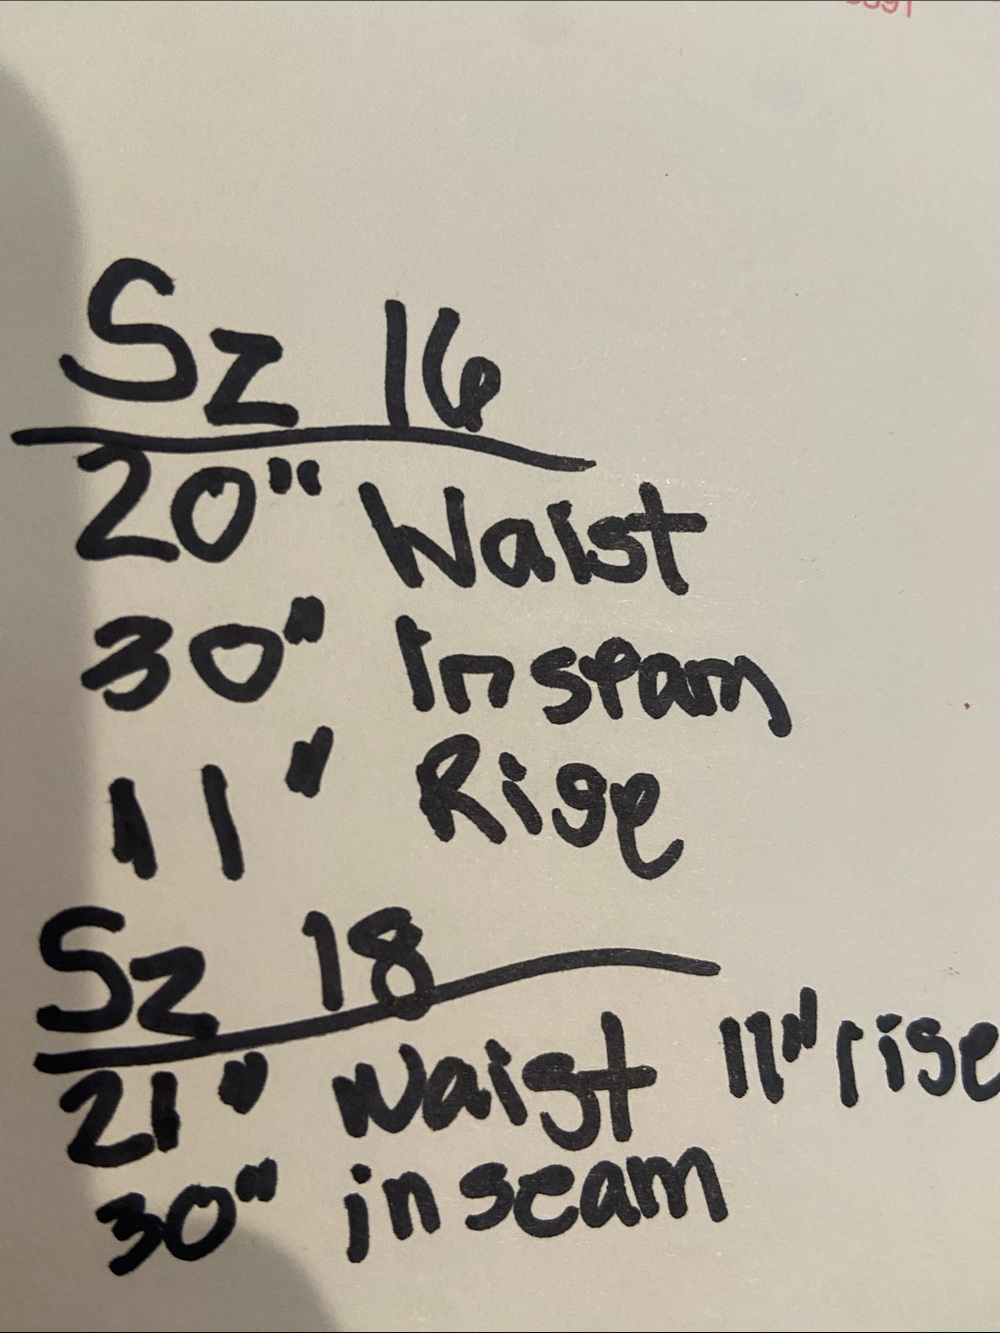 Sz 16
20" Waist
30" Inseam
11" Rise
Sz 18
21" Waist 11" rise
30" inseam